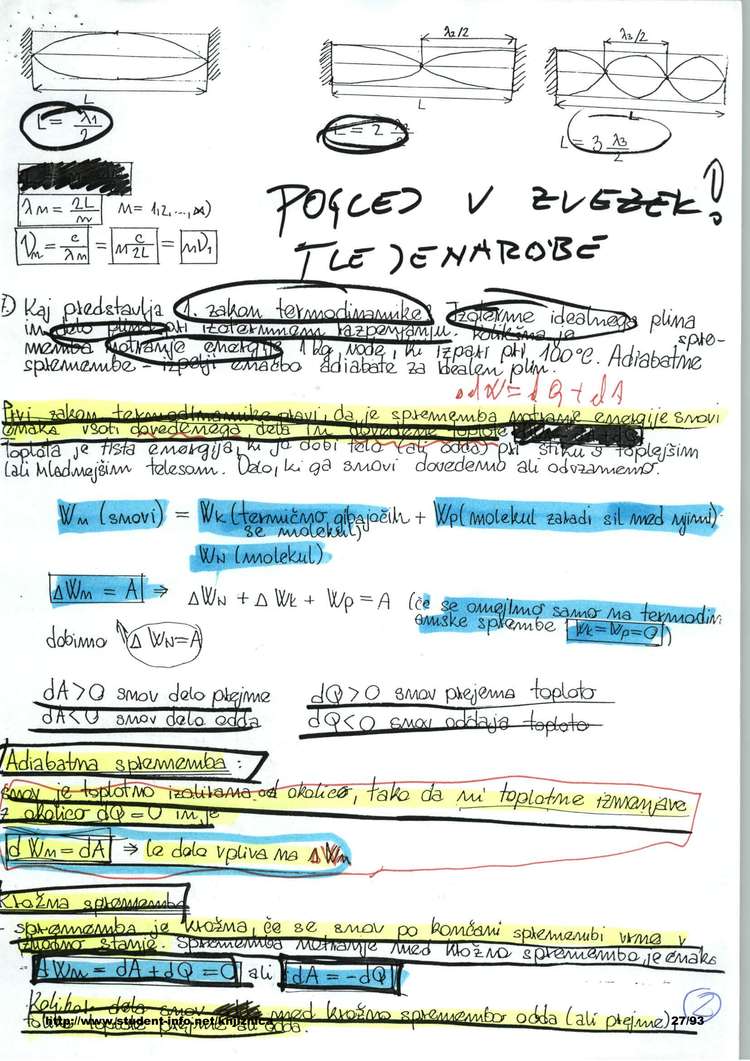 λ2/2 λ3/2
L L L
L = λ1/2 L = 2 λ2/2 L = 3 λ3/2
λm = 2L/m m = 1,2,...,∞)
νm = c/λm = m c/2L = mν1
POGLED V ZVEZEK!
TLE JE NAROBE
7.) Kaj predstavlja 1. zakon termodinamike? Izoterme idealnega plina
in delo plina pri izotermnem razpenjanju. Kolikšna je spre-
memba notranje energije 1 kg vode, ki izpari pri 100°C. Adiabatne
spremembe - izpelji enačbo adiabate za idealen plin.
dW = dQ + dA
Prvi zakon termodinamike pravi, da je sprememba notranje energije snovi
enaka vsoti dovedenega dela in dovedene toplote
Toplota je tista energija, ki jo dobi telo (ali odda) pri stiku s toplejšim
(ali hladnejšim telesom. Delo, ki ga snovi dovedemo ali odvzamemo.
Wn (snovi) = Wk (termično gibajočih + Wp (molekul zaradi sil med njimi)
se molekul)
WN (molekul)
ΔWn = A ⇒ ΔWN + ΔWk + Wp = A (če se omejimo samo na termodin
amske sprembe Wk = Wp = 0)
dobimo ΔWN = A
dA > 0 snov delo prejme dQ > 0 snov prejema toploto
dA < 0 snov delo odda dQ < 0 snov oddaja toploto
Adiabatna sprememba :
snov je toplotno izolirana od okolice, tako da ni toplotne izmenjave
z okolico dQ = 0 in je
dWn = dA ⇒ le delo vpliva na ΔWn
Krožna sprememba
- sprememba je krožna, če se snov po končani spremembi vrne v
izhodno stanje. Sprememba notranje med krožno spremembo je enaka
ΔWn = dA + dQ = 0 ali dA = -dQ
Kolikor dela snov med krožno spremembo odda (ali prejme),
toliko toplote prejme ali odda.
http://www.student-info.net/knjiznica 27/93
2